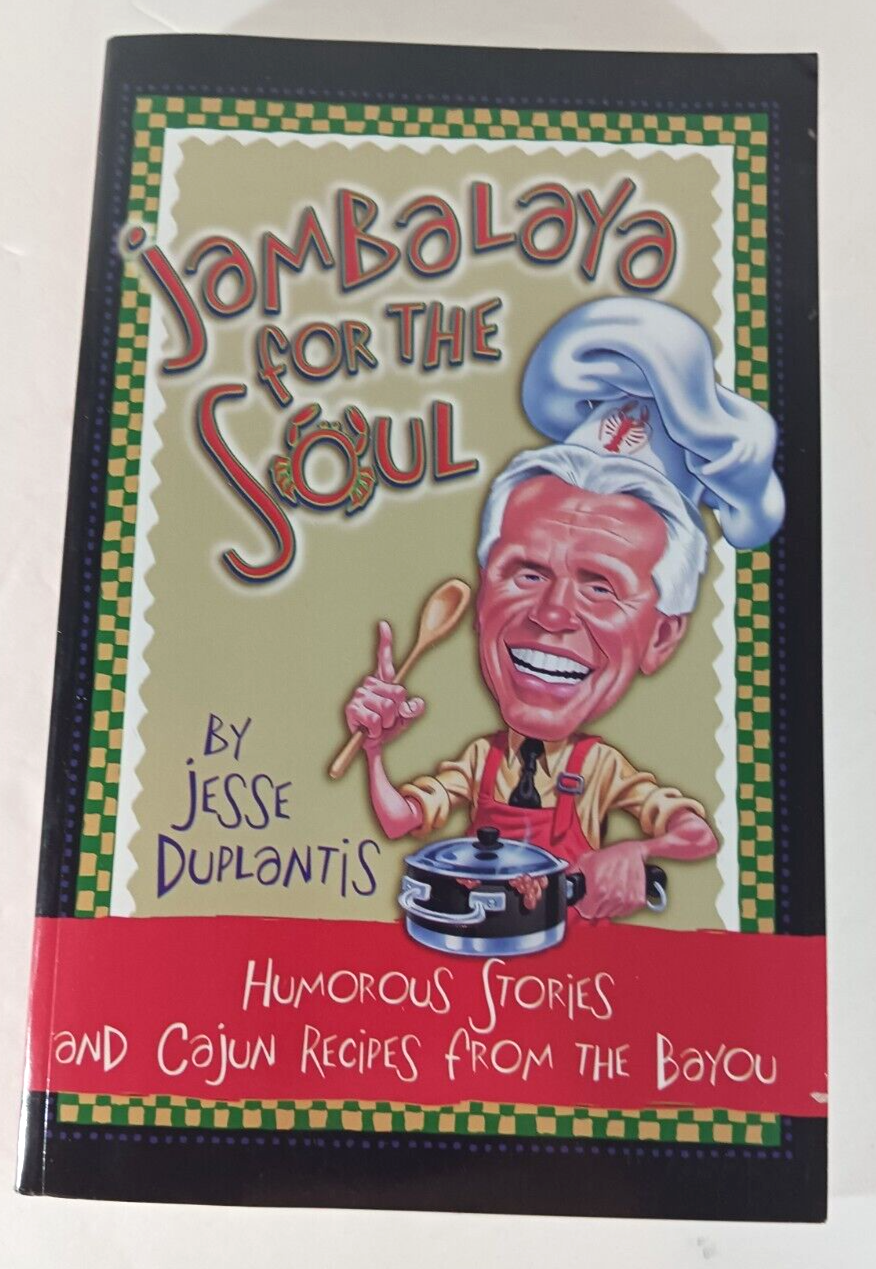 Jambalaya
for the
Soul
By
Jesse
Duplantis
Humorous Stories
and Cajun Recipes from the Bayou